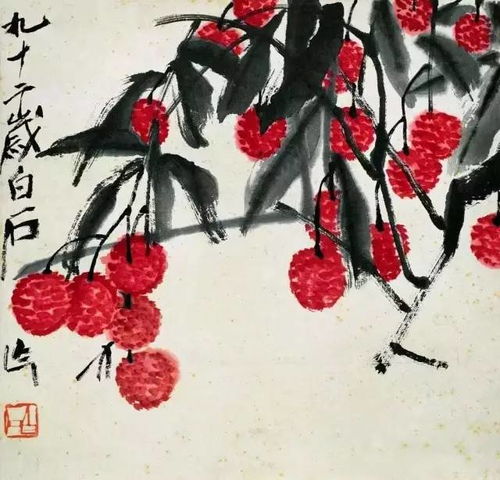 九十二歲白石